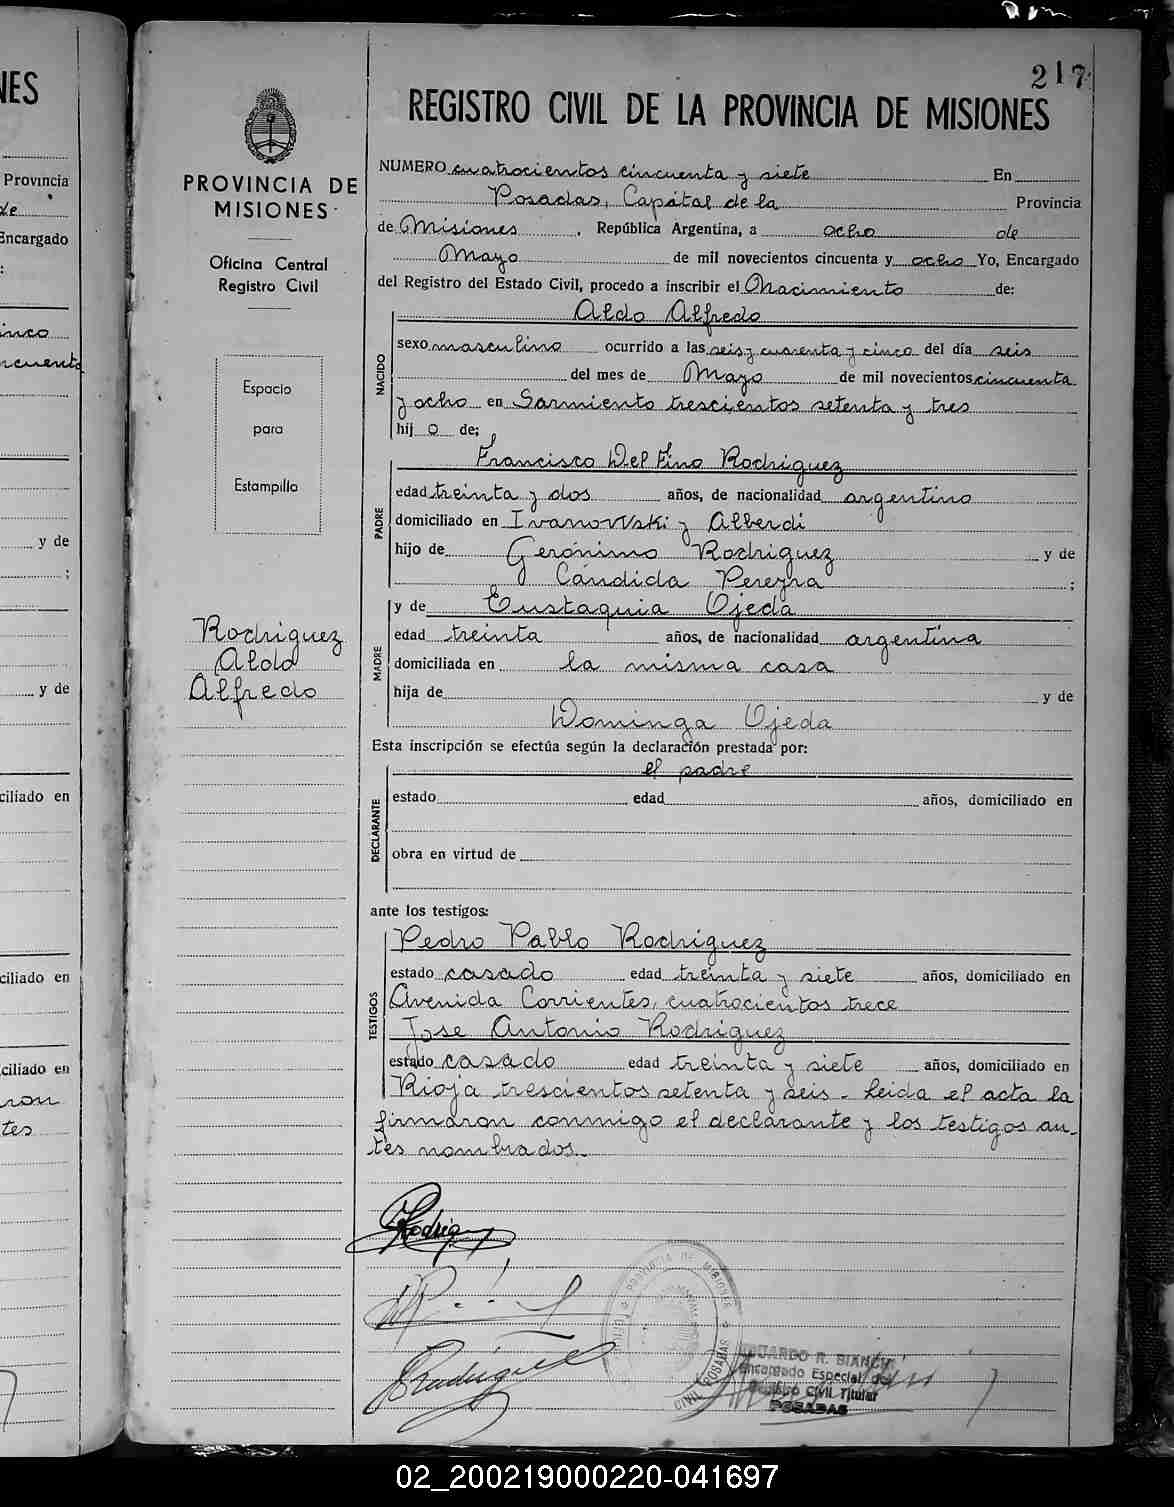 NES
Provincia
de
Encargado
:
inco
ncuenta
y de
;
y de
ciliado en
ciliado en
ciliado en
ron
tes
PROVINCIA DE
MISIONES
Oficina Central
Registro Civil
Espacio
para
Estampilla
Rodriguez
Aldo
Alfredo
217
REGISTRO CIVIL DE LA PROVINCIA DE MISIONES
NUMERO cuatrocientos cincuenta y siete En
Posadas, Capital de la Provincia
de Misiones, República Argentina, a ocho de
Mayo de mil novecientos cincuenta y ocho Yo, Encargado
del Registro del Estado Civil, procedo a inscribir el Nacimiento de:
NACIDO
Aldo Alfredo
sexo masculino ocurrido a las seis y cuarenta y cinco del día seis
del mes de Mayo de mil novecientos cincuenta
y ocho en Sarmiento trescientos setenta y tres
hij o de;
PADRE
Francisco Delfino Rodriguez
edad treinta y dos años, de nacionalidad argentino
domiciliado en Ivanowski y Alberdi
hijo de Gerónimo Rodriguez y de
Cándida Pereyra ;
MADRE
y de Eustaquia Ojeda
edad treinta años, de nacionalidad argentina
domiciliada en la misma casa
hija de y de
Dominga Ojeda
Esta inscripción se efectúa según la declaración prestada por:
DECLARANTE
el padre
estado edad años, domiciliado en
obra en virtud de
ante los testigos:
TESTIGOS
Pedro Pablo Rodriguez
estado casado edad treinta y siete años, domiciliado en
Avenida Corrientes, cuatrocientos trece
Jose Antonio Rodriguez
estado casado edad treinta y siete años, domiciliado en
Rioja trescientos setenta y seis - Leida el acta la
firmaron conmigo el declarante y los testigos an-
tes nombrados.-
Rodrig
Rodriguez
PROVINCIA DE MISIONES
CIVIL POSADAS
EDUARDO R. BIANCHI
Encargado Especial del
Registro Civil Titular
POSADAS
02_200219000220-041697